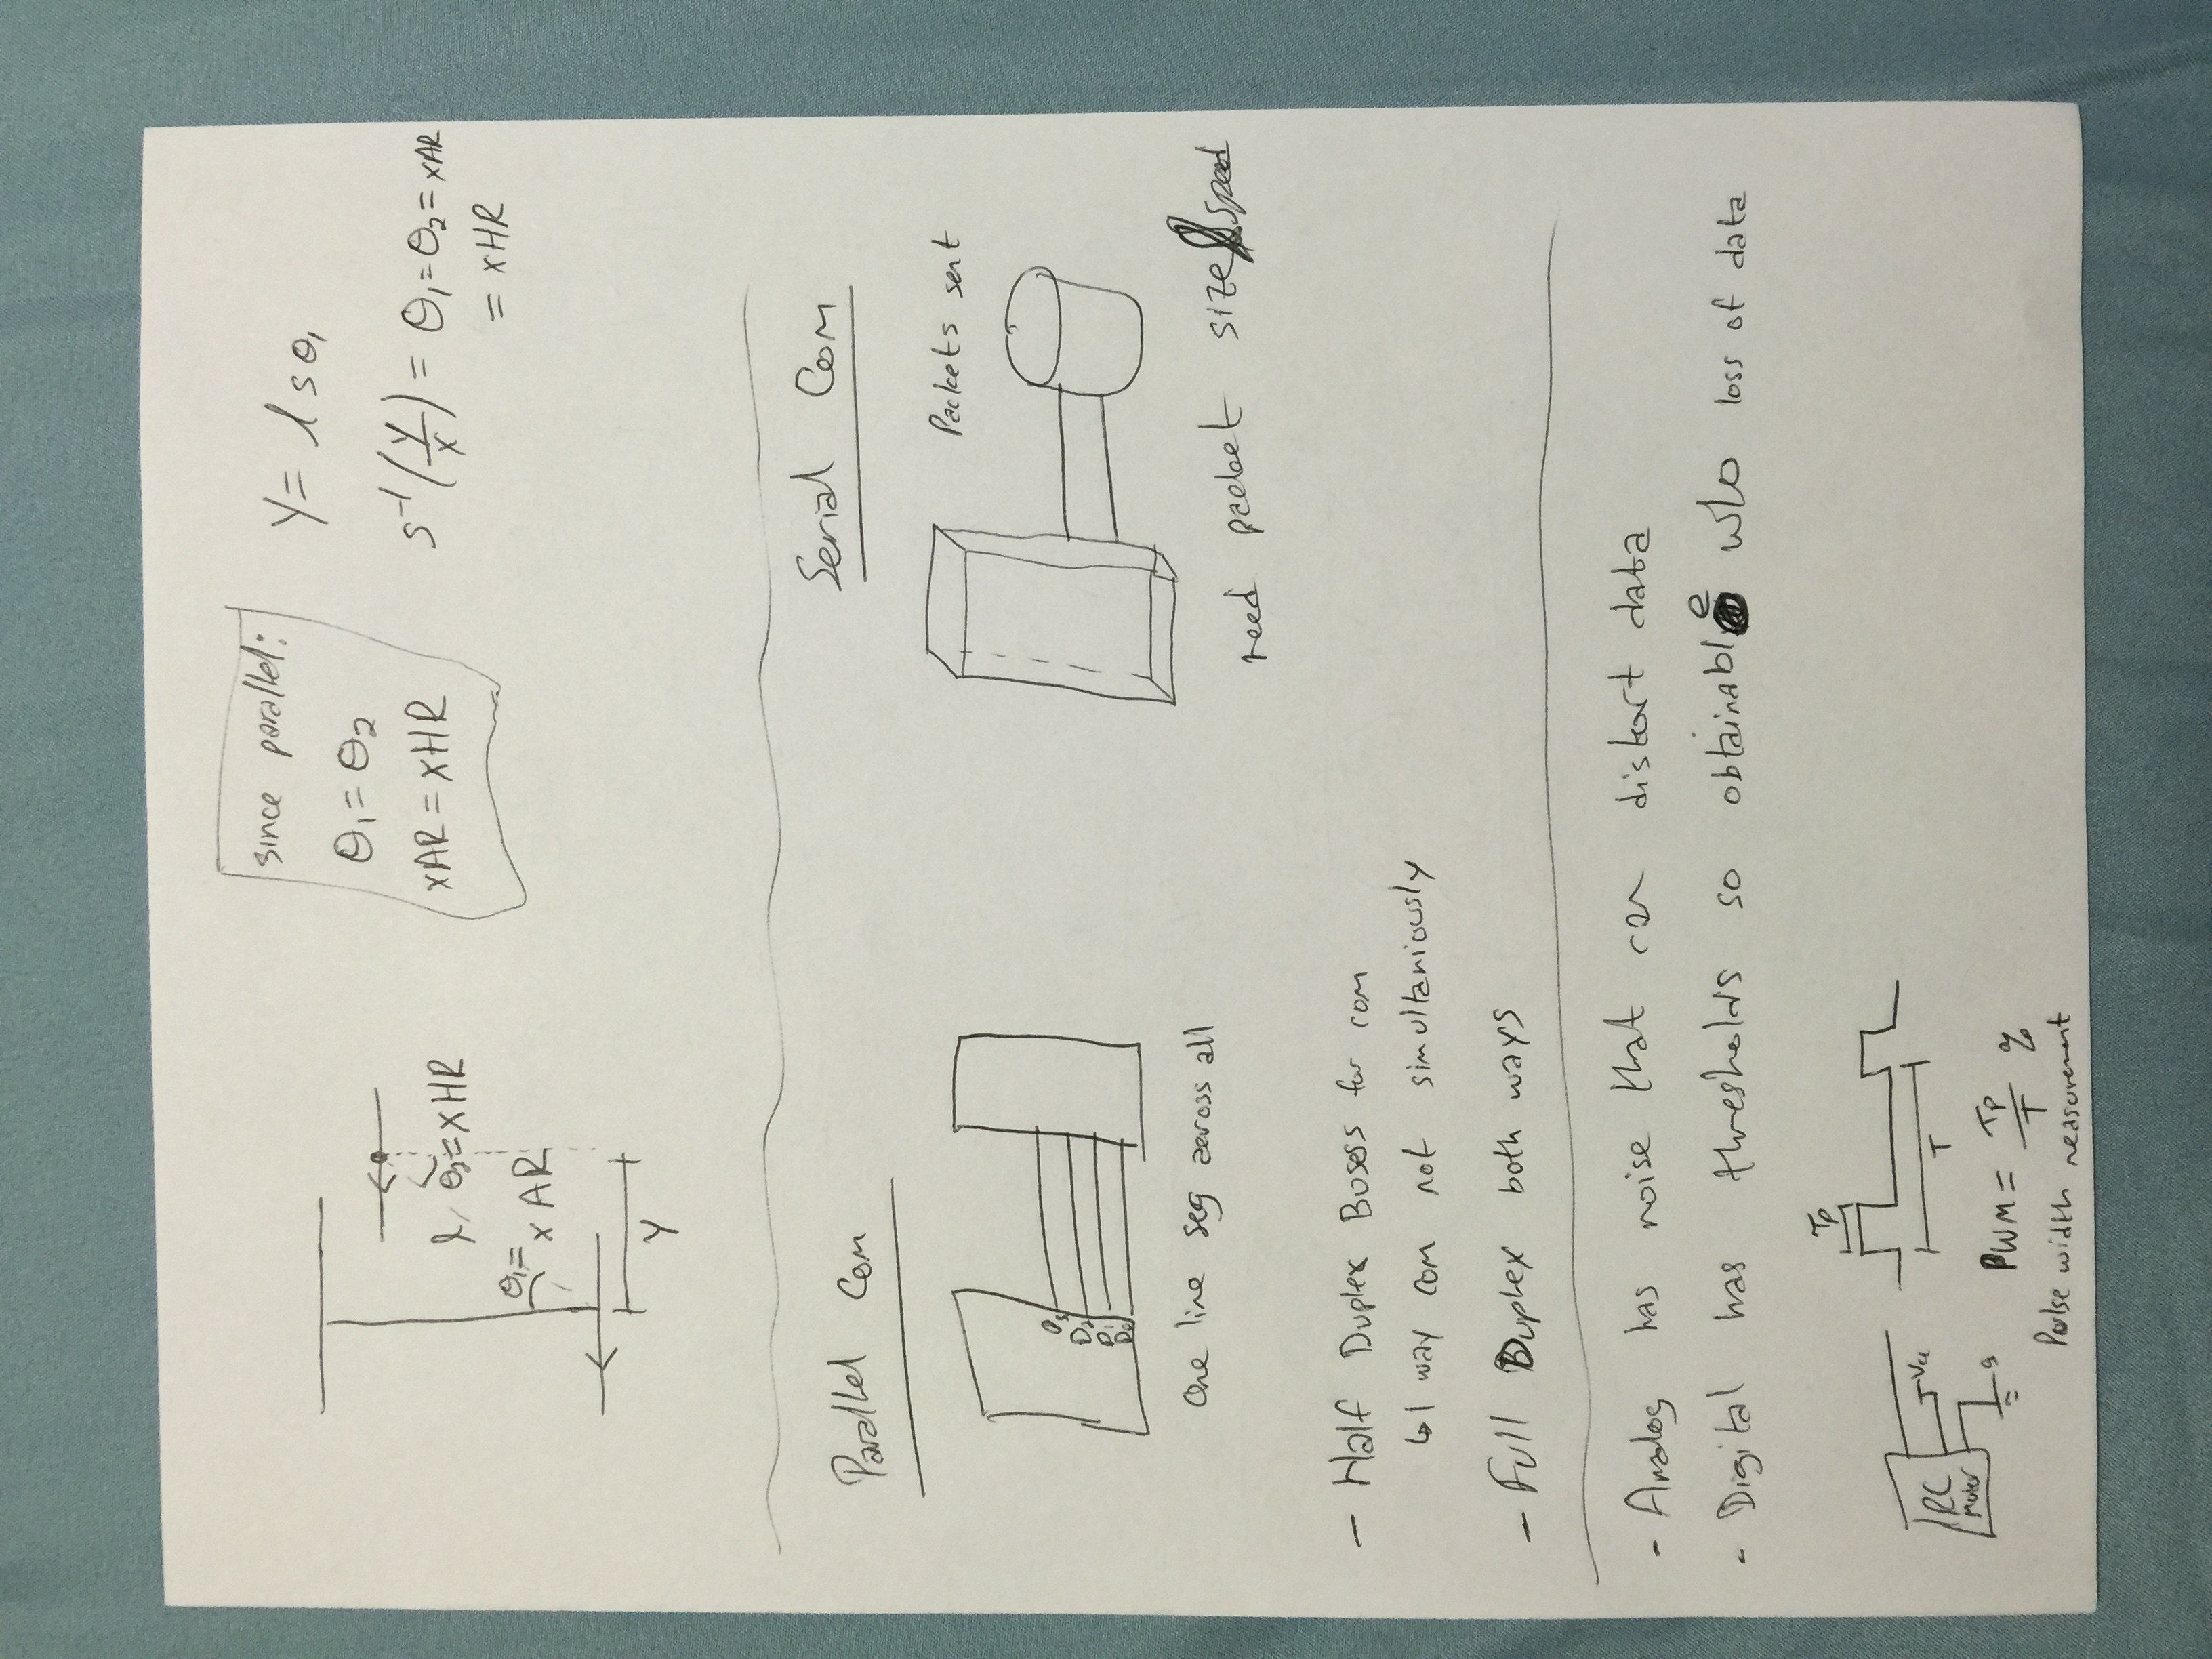 since parallel:
θ₁ = θ₂
xAR = xHR
Y = l s θ₁
s⁻¹(y/x) = θ₁ = θ₂ = xAR
= xHR
l θ₂ = xHR
θ₁ =
x AR
Y
Parallel Com
Serial Com
Packets sent
D₃
D₂
D₁
D₀
One line seg across all
need packet size speed
- Half Duplex Busess for com
↳ 1 way com not simultaniously
- Full Duplex both ways
- Analog has noise that can distort data
- Digital has thresholds so obtainable w/o loss of data
Tp
T
RC
Motor
PWM = Tp/T %
Pulse width measurement